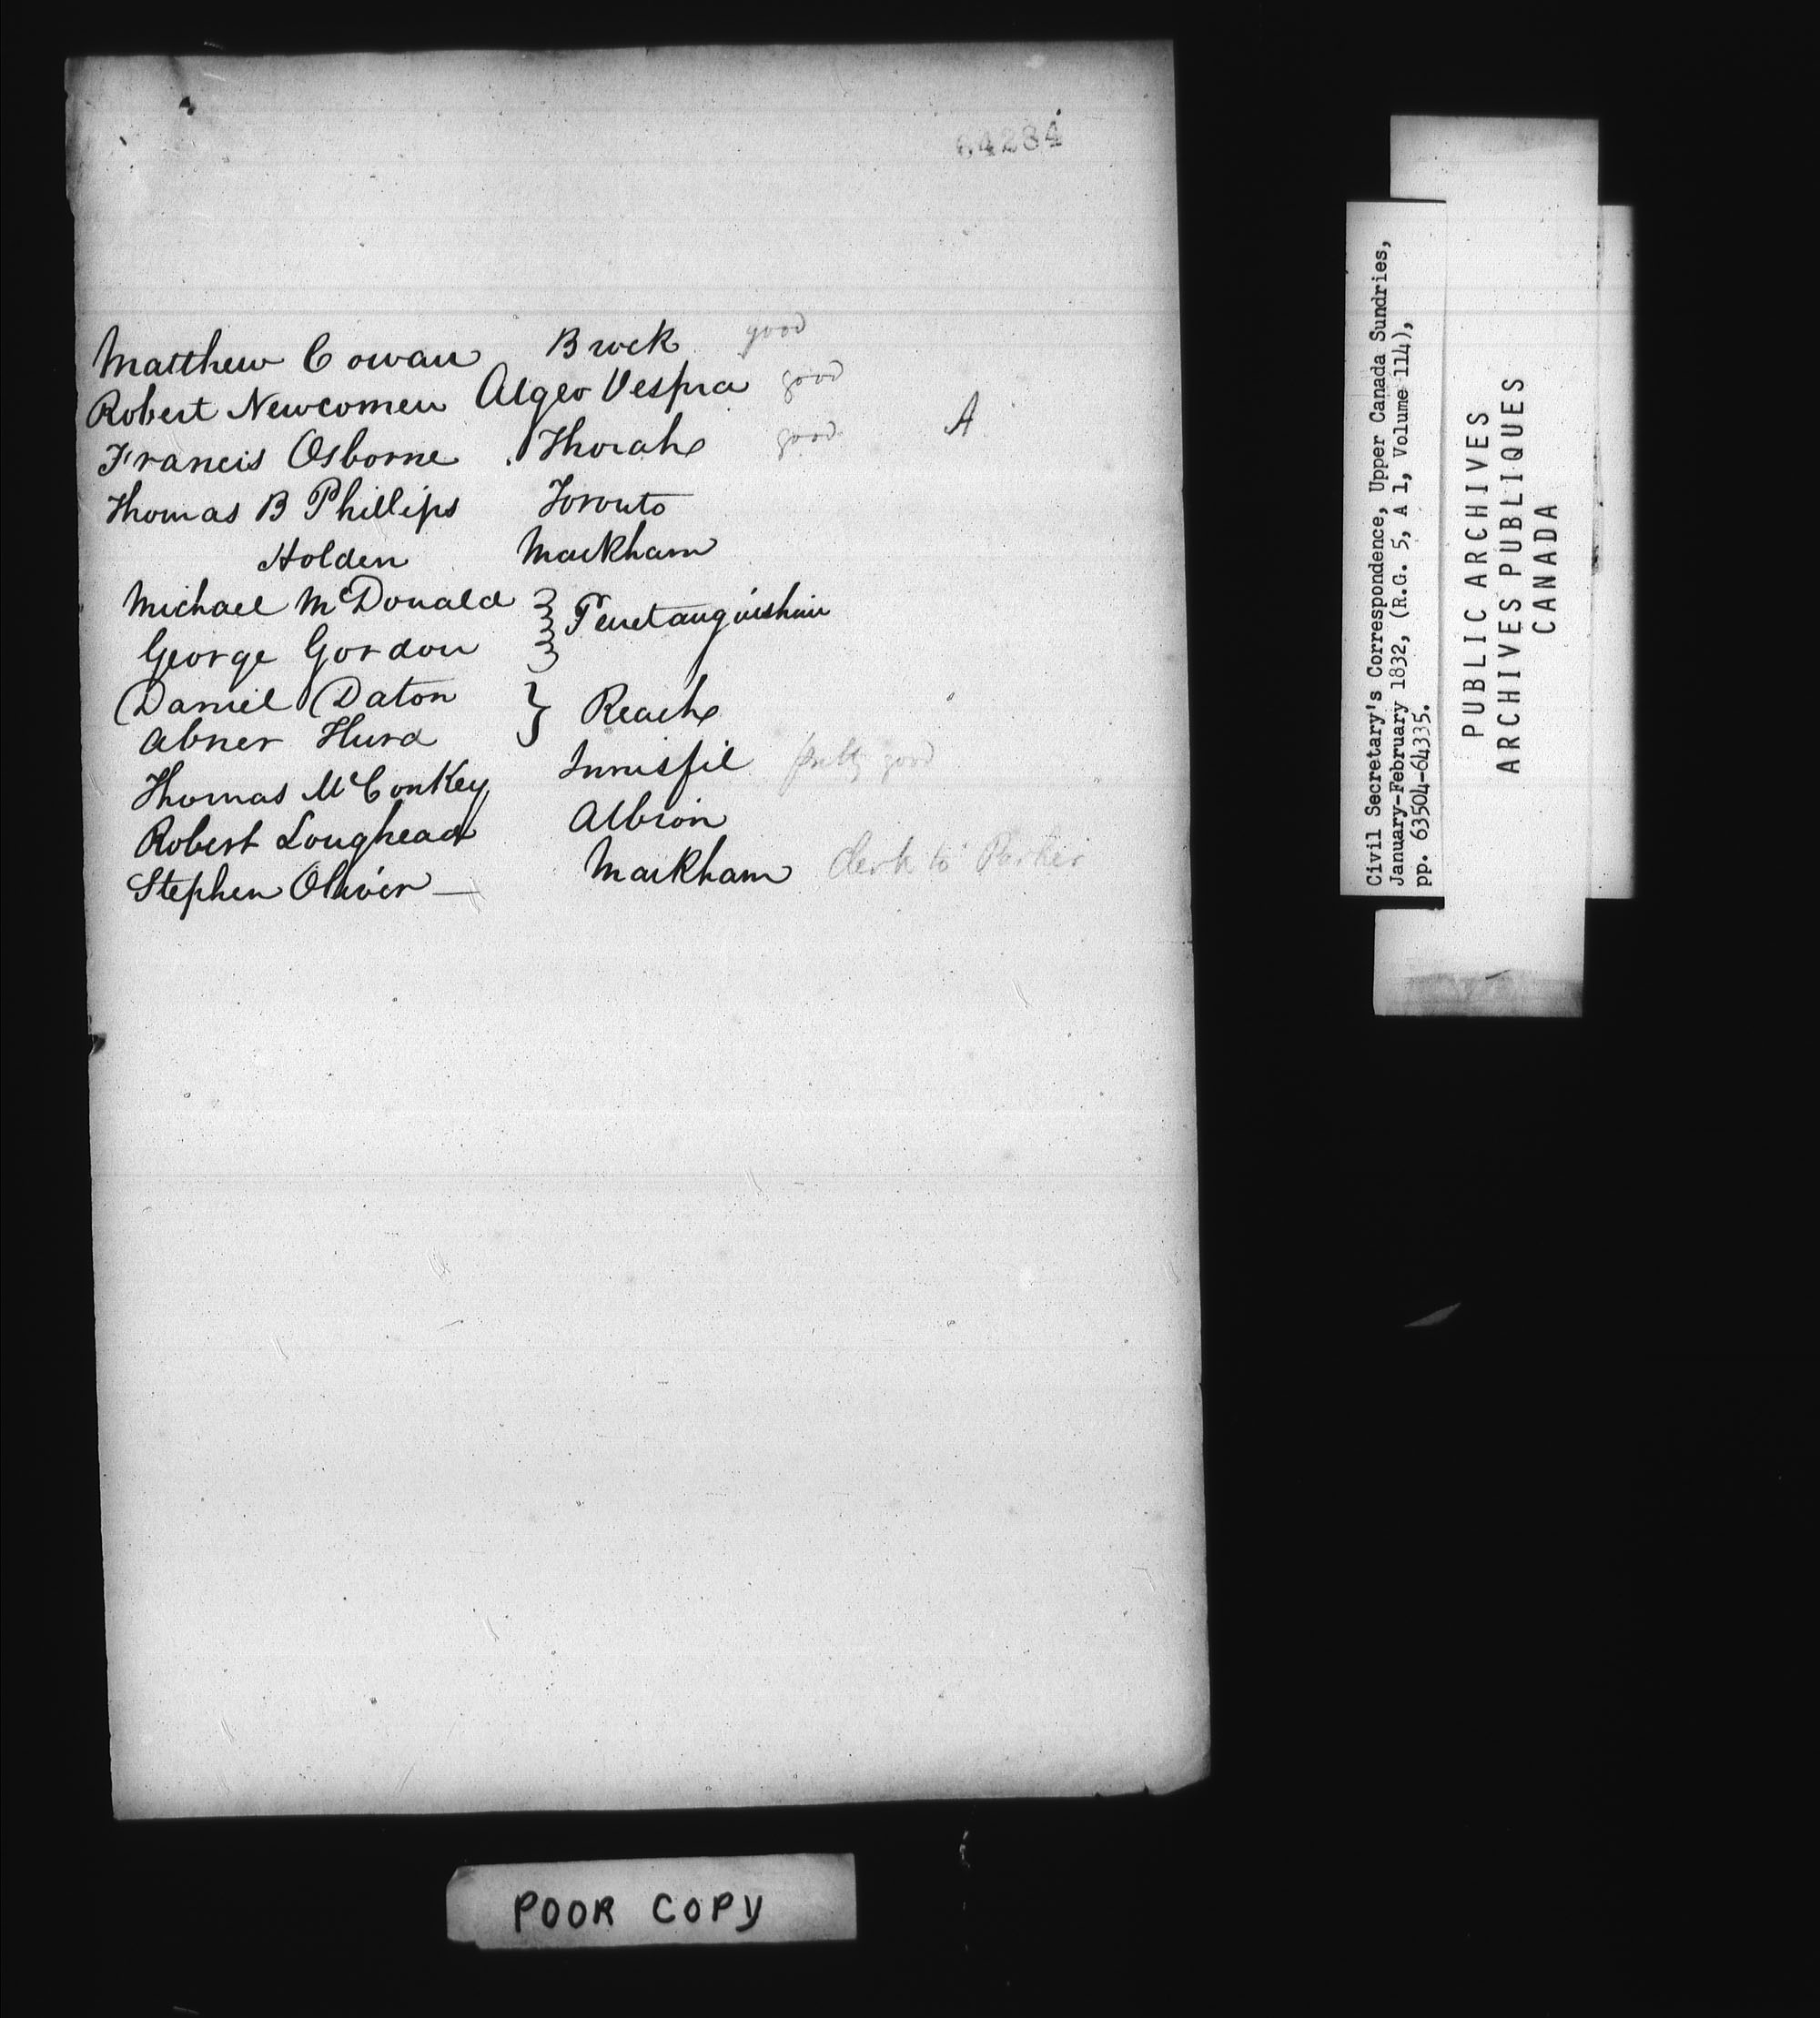 64284
Matthew Cowan Brock good
Robert Newcomen Algeo Vespra good
Francis Osborne . Thorah good A
Thomas B Phillips Toronto
Holden Markham
Michael McDonald } Penetanguishine
George Gordon
Daniel Daton } Reach
Abner Hurd
Thomas McConkey Innisfil pretty good
Robert Loughead Albion
Stephen Oliver — Markham Clerk to Parker
POOR COPY
Civil Secretary's Correspondence, Upper Canada Sundries,
January-February 1832, (R.G. 5, A 1, Volume 114),
pp. 63504-64335.
PUBLIC ARCHIVES
ARCHIVES PUBLIQUES
CANADA